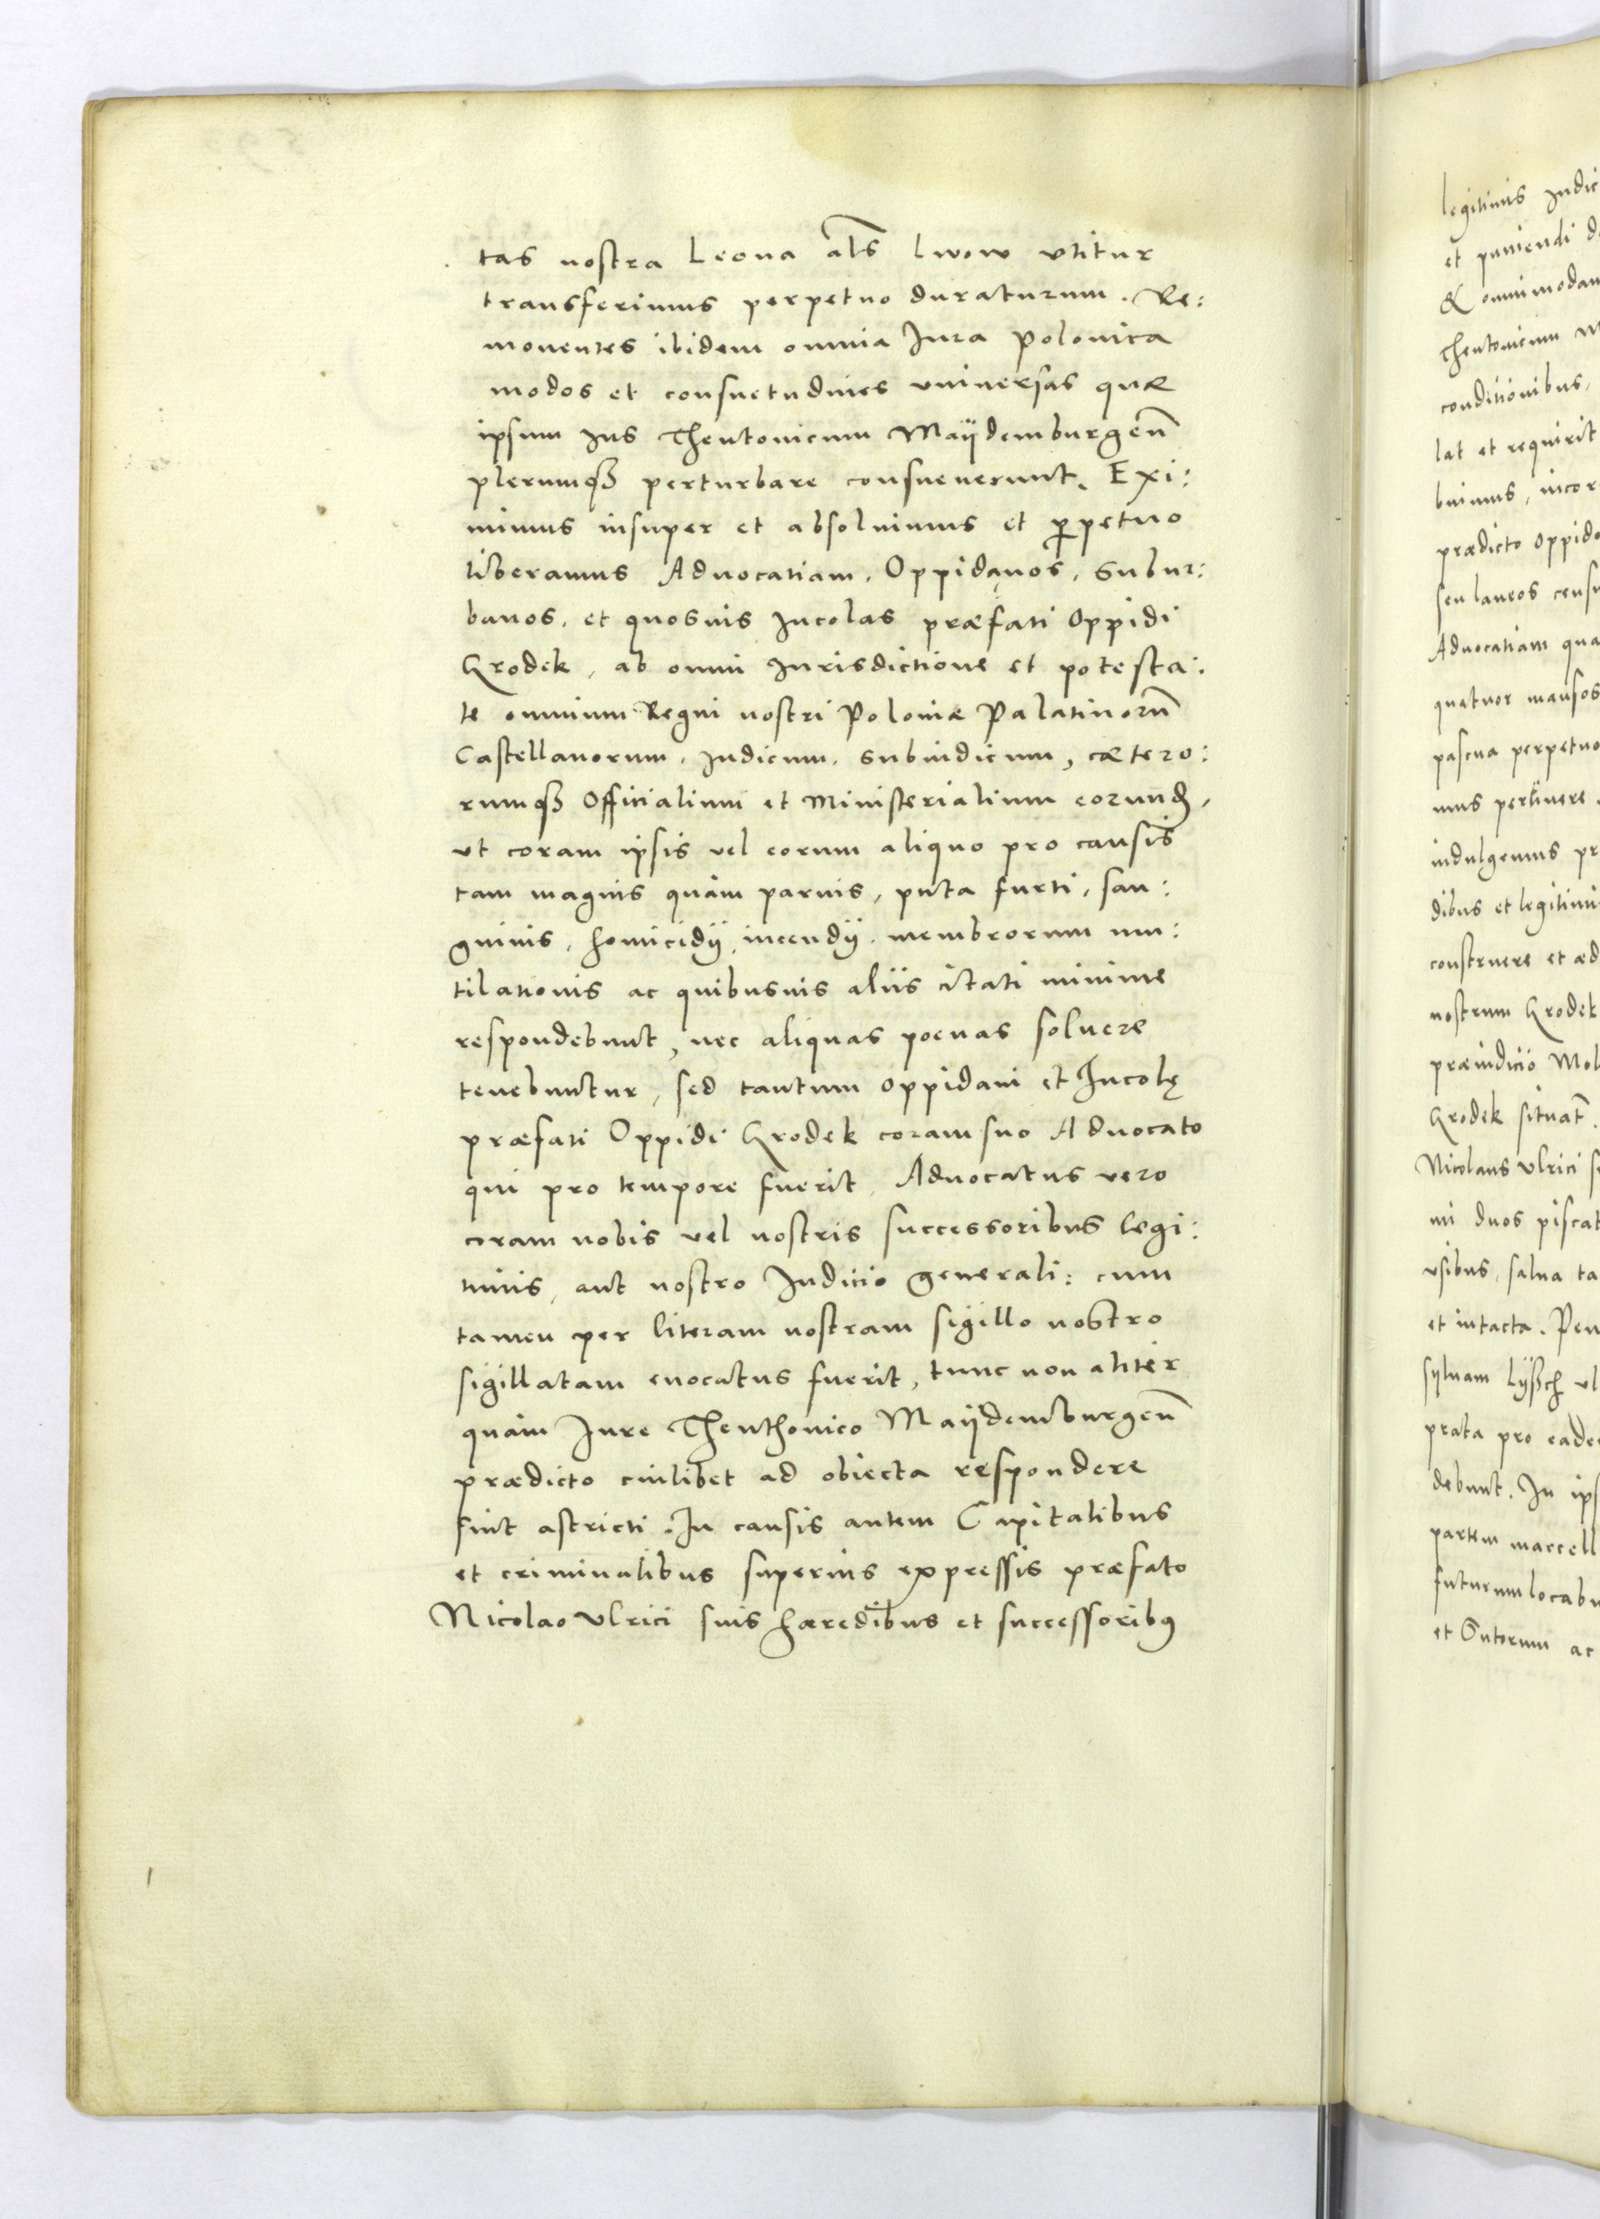 tas nostra Leona als Lwow vtitur
transferimus perpetuo duraturum. Re:
mouentes ibidem omnia Jura Polonica
modos et consuetudines vniuersas quæ
ipsum Jus Theutonicum Maijdemburgen̄
plerumqȝ perturbare consueuerunt. Exi:
mimus insuper et absoluimus et ꝑpetuo
liberamus Aduocatiam, Oppidanos, Subur:
banos, et quosuis Incolas præfati Oppidi
Grodek, ab omni Jurisdictione et potesta:
te omnium Regni nostri Poloniæ Palatinorū
Castellanorum, Judicum, Subiudicum, cætero:
rumqȝ Officialium et Ministerialium eorund̨,
vt coram ipsis vel eorum aliquo pro causis
tam magnis quàm paruis, puta furti, san:
guinis, homicidij, incendij, membrorum mu:
tilationis ac quibusuis aliis citati minime
respondebunt, nec aliquas poenas soluere
tenebuntur, sed tantum oppidani et Incolę
præfati Oppidi Grodek coram suo Aduocato
qui pro tempore fuerit, Aduocatus vero
coram nobis vel nostris successoribus legi:
timis, aut nostro Judicio generali: cum
tamen per literam nostram sigillo nostro
sigillatam euocatus fuerit, tunc non aliter
quàm Jure Theuthonico Maijdemburgen̄
prædicto cuilibet ad obiecta respondere
sint astricti. In causis autem Capitalibus
et criminalibus superius expressis præfato
Nicolao Vlrici suis hæredibus et successoribꝰ
legitimis Judic
et puniendi
& omnimodam
Theutonicum M
conditionibus,
lat et requirit
buimus, incor
prædicto Oppido
seu laneos censu
Aduocatiam qua
quatuor mansos
pascua perpetuo
mus pertinere.
indulgemus pr
dibus et legitimi
construere et æd
nostrum Grodek
præiudicio Mol
Grodek situat̄.
Nicolaus Vlrici s
mi duos piscat
vsibus, salua ta
et intacta. Pen
syluam Lyßch vl
prata pro eade
debunt. In ips
partem maccell
futurum locabu
et Sutorum ac